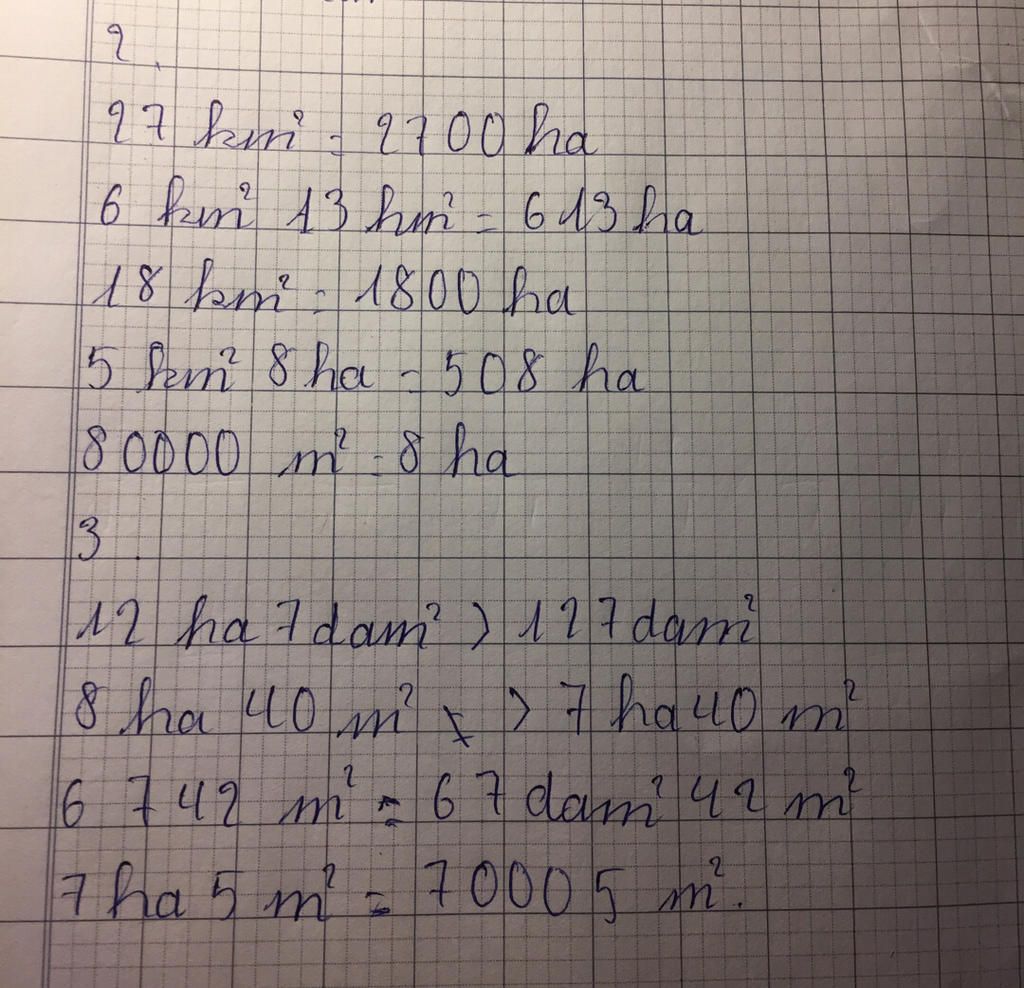 2.
27 km² = 2700 ha
6 km² 13 hm² = 613 ha
18 km² = 1800 ha
5 km² 8 ha = 508 ha
80000 m² = 8 ha
3.
12 ha 7 dam² > 127 dam²
8 ha 40 m² > 7 ha 40 m²
6 742 m² = 67 dam² 42 m²
7 ha 5 m² = 70005 m².